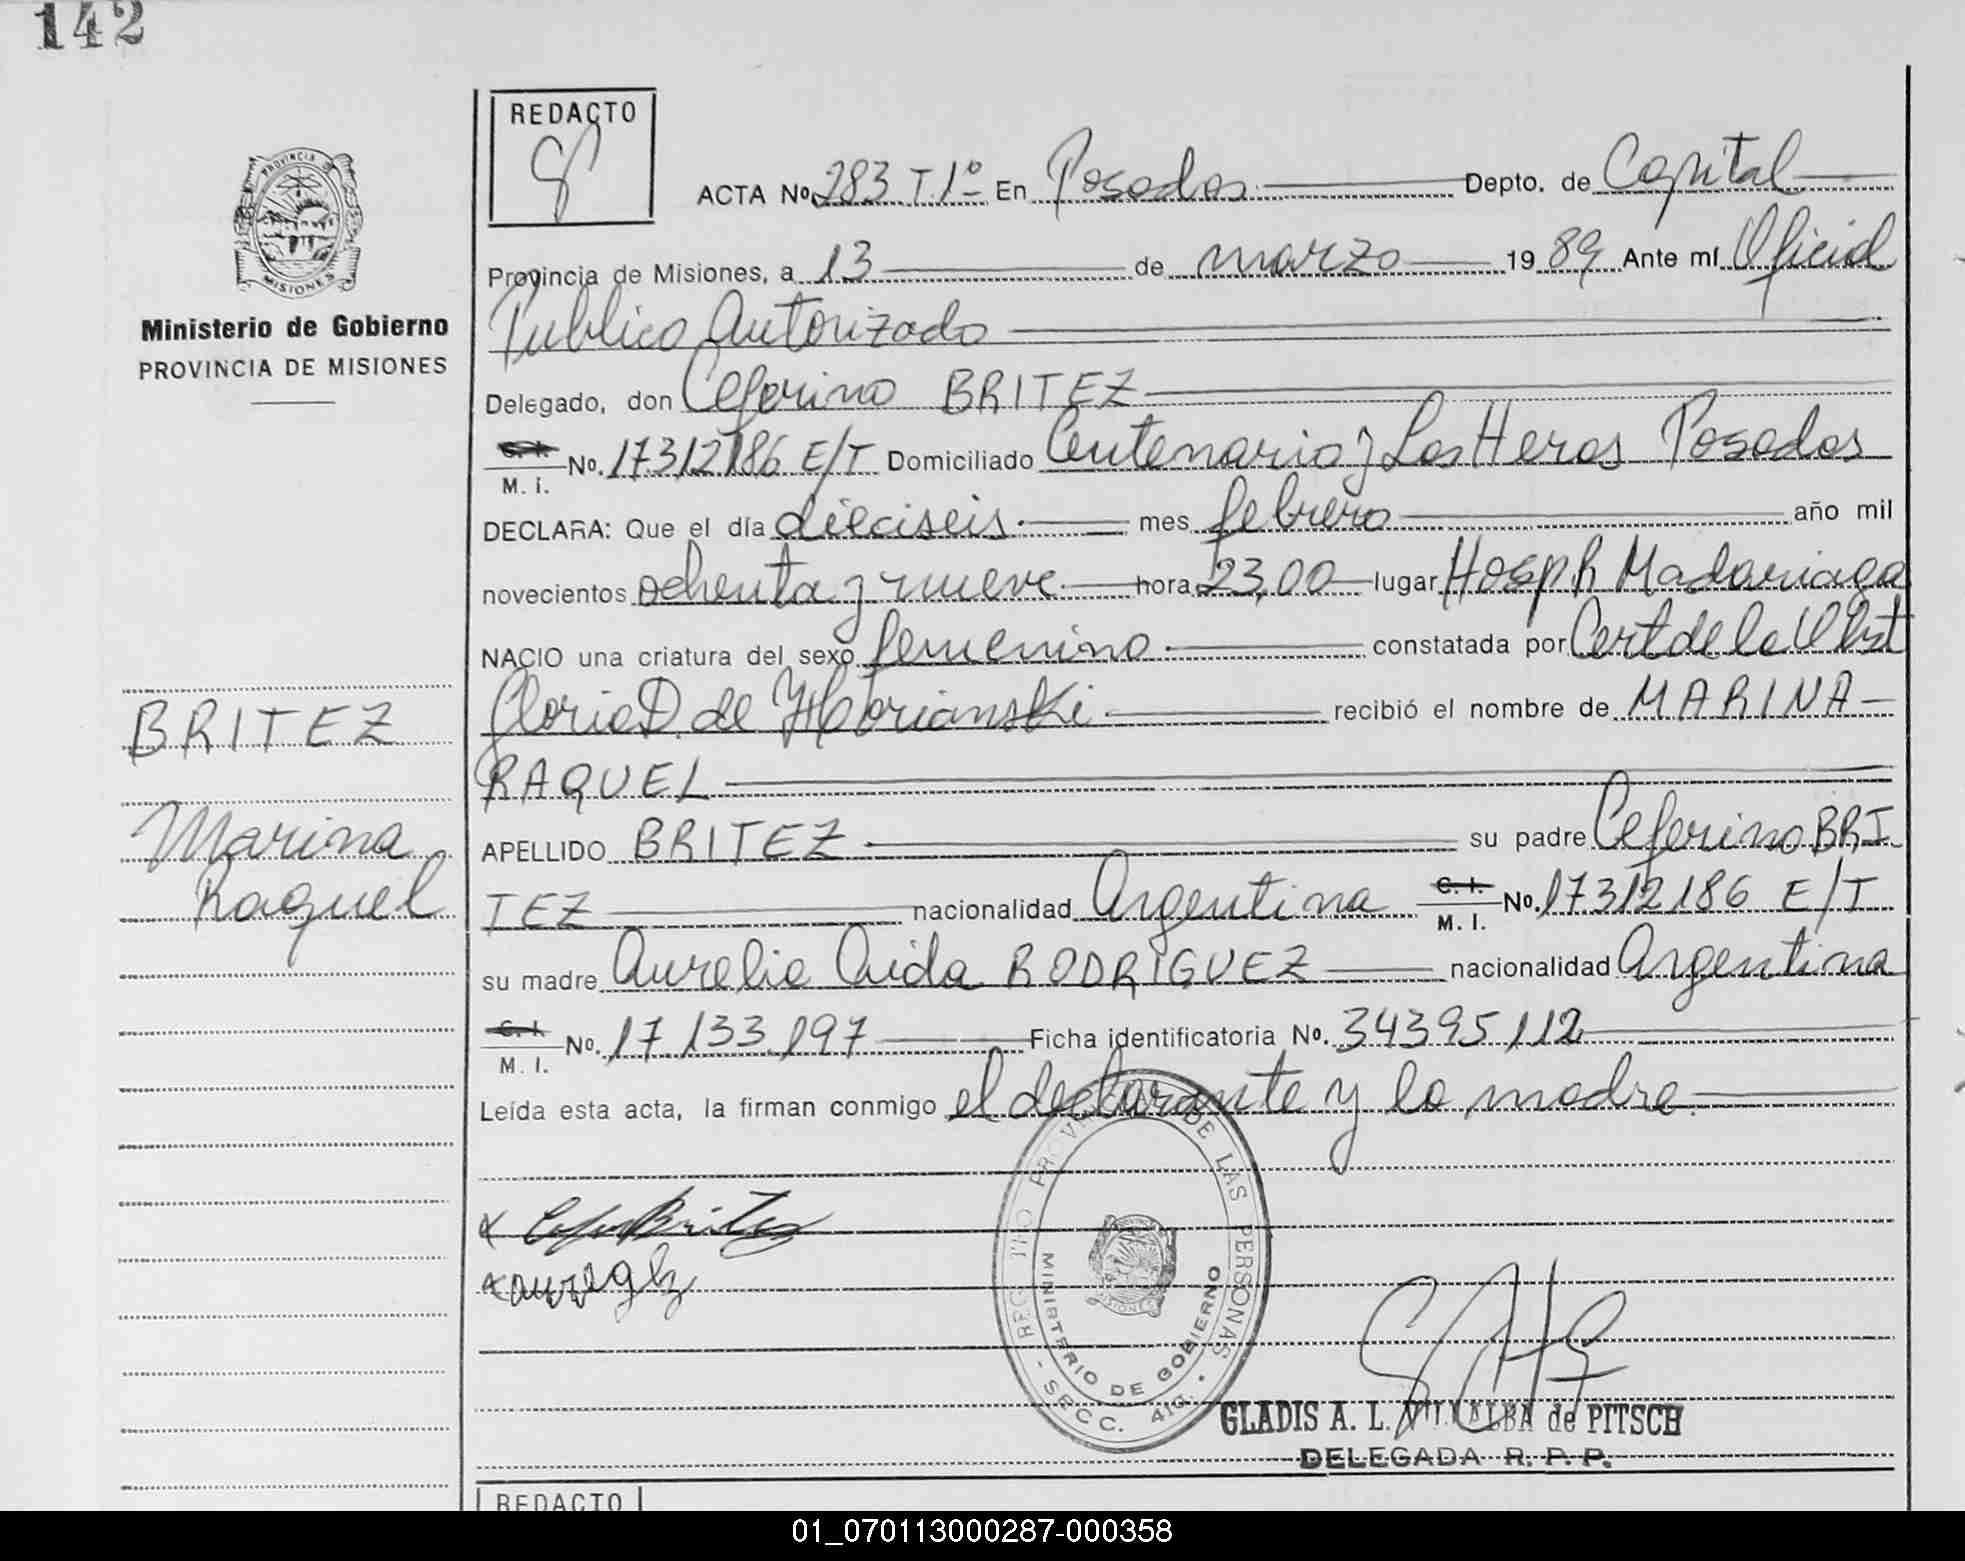 142
REDACTO
ACTA No. 283 T.1º En Posadas Depto. de Capital
Provincia de Misiones, a 13 de marzo 1989 Ante mí Oficial
Publico Autorizado
Delegado, don Ceferino BRITEZ
C. I. M. I. No. 17.312.186 E/T Domiciliado Centenario y Las Heras Posadas
DECLARA: Que el día dieciseis mes febrero año mil
novecientos ochenta y nueve hora 23,00 lugar Hosp. R Madariaga
NACIO una criatura del sexo femenino constatada por Cert de la Obst
Gloria D. de recibió el nombre de MARINA
RAQUEL
APELLIDO BRITEZ su padre Ceferino BRI
TEZ nacionalidad Argentina C. I. M. I. No. 17.312.186 E/T
su madre Aurelia Aida RODRIGUEZ nacionalidad Argentina
C. I. M. I. No. 17.133.197 Ficha identificatoria No. 34395112
Leída esta acta, la firman conmigo el declarante y la madre.
PROVINCIA DE MISIONES
Ministerio de Gobierno
PROVINCIA DE MISIONES
BRITEZ
Marina
Raquel
REGISTRO PROVINCIAL DE LAS PERSONAS
MINISTERIO DE GOBIERNO
MISIONES
- SECC. 41a. -
GLADIS A. L. VILLALBA de PITSCH
DELEGADA R. P. P.
REDACTO
01_070113000287-000358